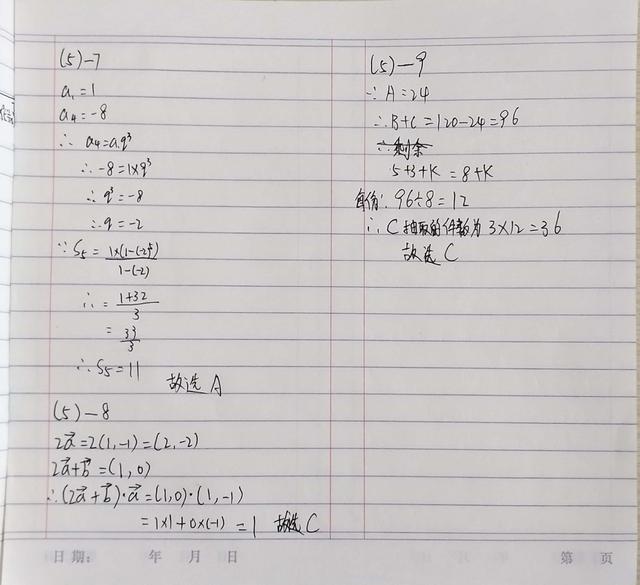 (5)-7
a₁=1
a₄=-8
∴ a₄=a₁q³
∴ -8=1×q³
∴ q³=-8
∴ q=-2
∵ S₅=1×(1-(-2)⁵)/1-(-2)
∴ =1+32/3
=33/3
∴ S₅=11
故选A
(5)-8
2a⃗=2(1,-1)=(2,-2)
2a⃗+b⃗=(1,0)
∴(2a⃗+b⃗)·a⃗=(1,0)·(1,-1)
=1×1+0×(-1)=1 故选C
(5)-9
∵ A=24
∴ B+C=120-24=96
∴剩余
5+3+K=8+K
每份:96÷8=12
∴ C抽取的件数为 3×12=36
故选C
日期: 年 月 日 第 页